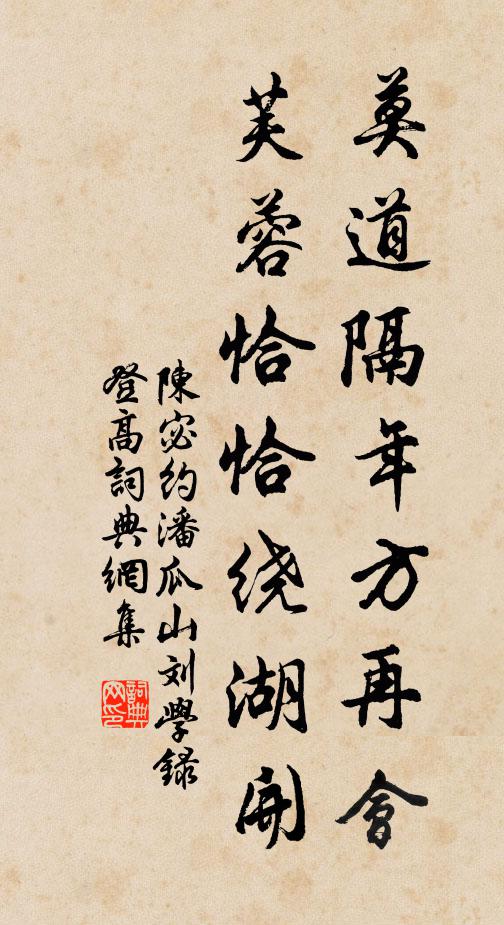 莫道隔年方再會
芙蓉恰恰绕湖開
陳宓約潘瓜山刘學録
登高詞典網集
詞典
网印